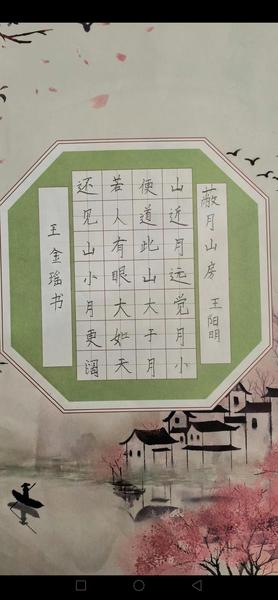 蔽月山房 王阳明
山近月远觉月小
便道此山大于月
若人有眼大如天
还见山小月更阔
王金瑶书